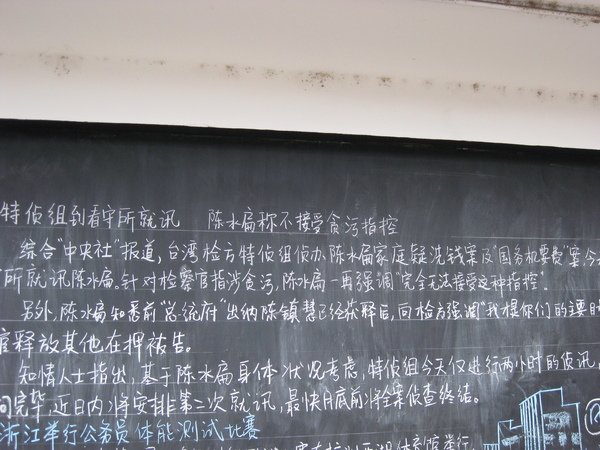 特侦组到看守所就讯 陈水扁称不接受贪污指控
综合"中央社"报道,台湾检方特侦组侦办陈水扁家庭疑洗钱案及"国务机要费"案今
所就讯陈水扁。针对检察官指涉贪污,陈水扁一再强调"完全无法接受这种指控"。
另外,陈水扁知悉前"总统府"出纳陈镇慧已经获释后,向检方强调"我想你们的主要目
官释放其他在押被告。
知情人士指出,基于陈水扁身体状况考虑,特侦组今天仅进行两小时的侦讯,
问完毕,近日内将安排第二次就讯,最快月底前将全案侦查终结。
浙江举行公务员体能测试比赛